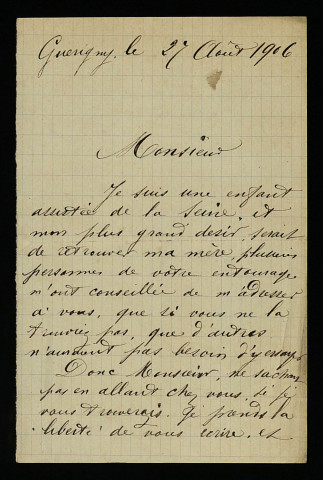 Guerigny le 27 Août 1906
Monsieur
Je suis une enfant
assistée de la Seine, et
mon plus grand desir, serait
de retrouver ma mère, plusieurs
personnes de votre entourage
m'ont conseillée de m'adresser
à vous, que si vous ne la
trouviez pas, que d'autres
n'auraient pas besoin d'y essayer
Donc Monsieur, ne sachant
pas en allant chez vous, si je
vous trouverais. Je prends la
liberté de vous ecrire, et